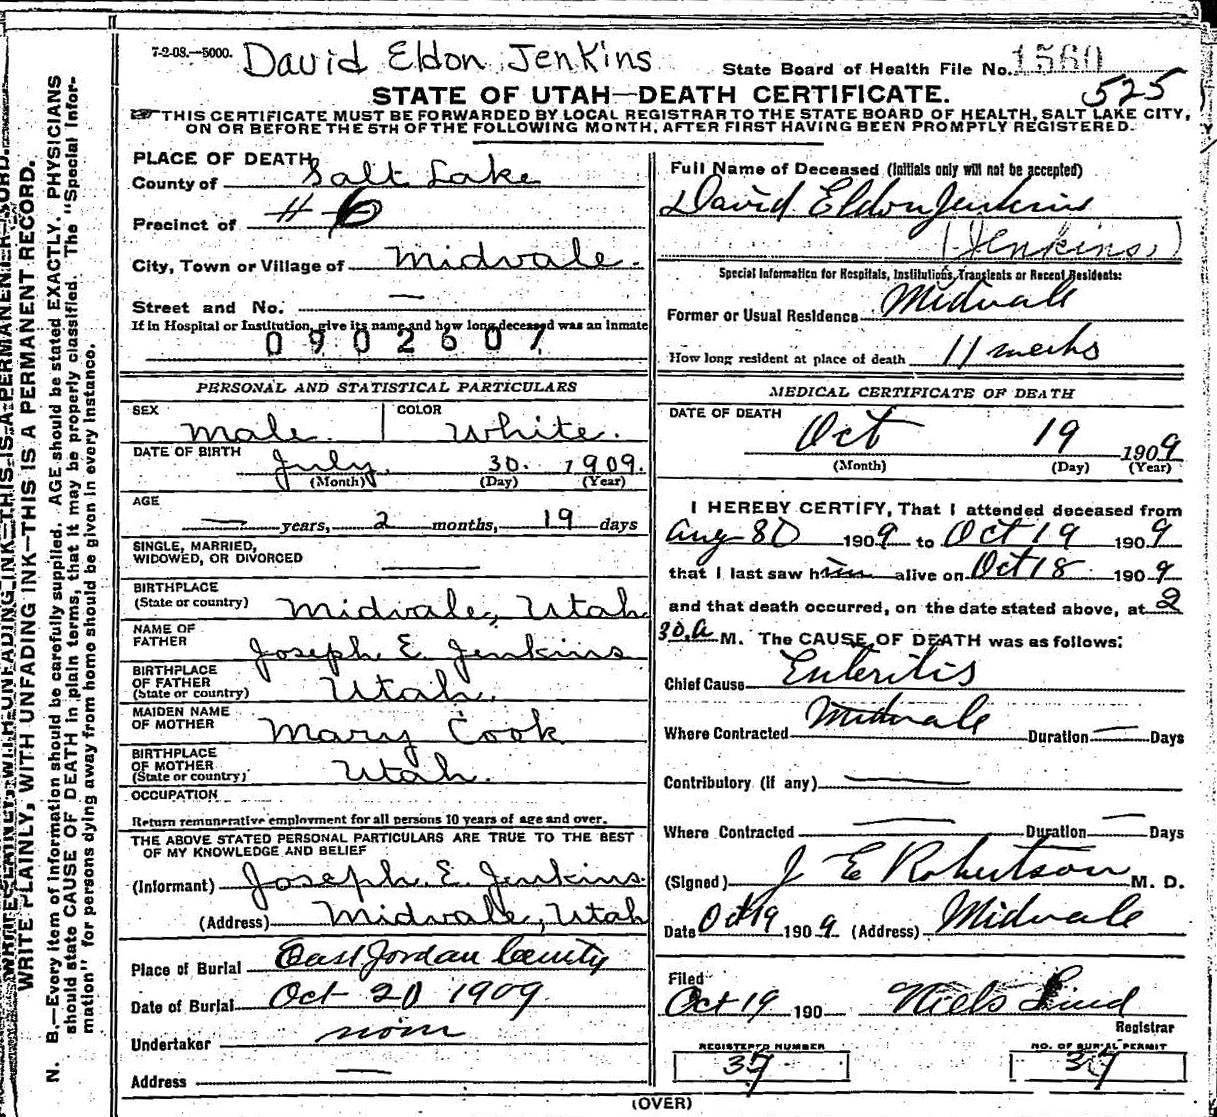 7-2-08.—5000. David Eldon Jenkins State Board of Health File No. 1560
525
STATE OF UTAH—DEATH CERTIFICATE.
THIS CERTIFICATE MUST BE FORWARDED BY LOCAL REGISTRAR TO THE STATE BOARD OF HEALTH, SALT LAKE CITY,
ON OR BEFORE THE 5TH OF THE FOLLOWING MONTH, AFTER FIRST HAVING BEEN PROMPTLY REGISTERED.
PLACE OF DEATH
County of Salt Lake
Precinct of #6
City, Town or Village of Midvale.
Street and No. —
If in Hospital or Institution, give its name and how long deceased was an inmate
0902607
PERSONAL AND STATISTICAL PARTICULARS
SEX Male. COLOR White.
DATE OF BIRTH July 30. 1909.
(Month) (Day) (Year)
AGE
— years, 2 months, 19 days
SINGLE, MARRIED,
WIDOWED, OR DIVORCED —
BIRTHPLACE
(State or country) Midvale, Utah
NAME OF
FATHER Joseph E. Jenkins
BIRTHPLACE
OF FATHER
(State or country) Utah.
MAIDEN NAME
OF MOTHER Mary Cook
BIRTHPLACE
OF MOTHER
(State or country) Utah.
OCCUPATION
Return remunerative employment for all persons 10 years of age and over.
THE ABOVE STATED PERSONAL PARTICULARS ARE TRUE TO THE BEST
OF MY KNOWLEDGE AND BELIEF
(Informant) Joseph. E. Jenkins.
(Address) Midvale, Utah
Place of Burial East Jordan
Date of Burial Oct 20 1909
Undertaker
Address —
Full Name of Deceased (Initials only will not be accepted)
David Eldon Jenkins
(Jenkins.)
Special Information for Hospitals, Institutions, Transients or Recent Residents:
Former or Usual Residence Midvale
How long resident at place of death 11 weeks
MEDICAL CERTIFICATE OF DEATH
DATE OF DEATH
Oct 19 1909
(Month) (Day) (Year)
I HEREBY CERTIFY, That I attended deceased from
Aug 30 1909 to Oct 19 1909
that I last saw him alive on Oct 18 1909
and that death occurred, on the date stated above, at 2
30 a M. The CAUSE OF DEATH was as follows:
Chief Cause Enteritis
Where Contracted Midvale Duration — Days
Contributory (if any) —
Where Contracted — Duration — Days
(Signed) J E Robertson M. D.
Date Oct 19 1909 (Address) Midvale
Filed
Oct 19 190 Niels Lind
Registrar
REGISTERED NUMBER
37
NO. OF BURIAL PERMIT
37
(OVER)
WRITE PLAINLY, WITH UNFADING INK—THIS IS A PERMANENT RECORD.
N. B.—Every item of information should be carefully supplied. AGE should be stated EXACTLY. PHYSICIANS
should state CAUSE OF DEATH in plain terms, that it may be properly classified. The "Special Infor-
mation" for persons dying away from home should be given in every instance.